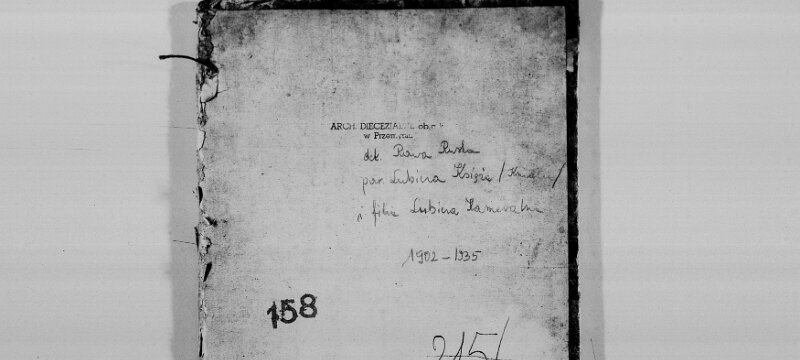 ARCH. DIECEZJALNE ob.
w Przem
dek. Rawa Ruska
par. Lubicza Księża /
i filia Lubicza Kameralna
1902-1935
158
215/